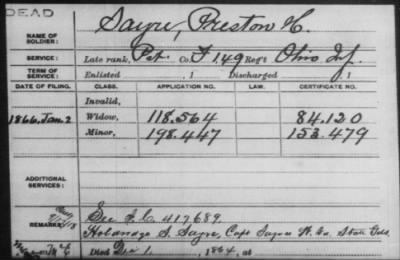 DEAD
NAME OF SOLDIER: Sayre, Preston H.
SERVICE: Late rank, Pvt. Co. F 149 Reg't Ohio Inf.
TERM OF SERVICE: Enlisted , 1 Discharged , 1
DATE OF FILING. CLASS. APPLICATION NO. LAW. CERTIFICATE NO.
Invalid,
1866, Jan. 2 Widow, 118.564 84.120
Minor, 198.447 153.479
ADDITIONAL SERVICES:
REMARKS: See I. C. 417689.
S. Sayre, Capt Sayre W. Va. State Gds.
Died Dec 1, 1864, at